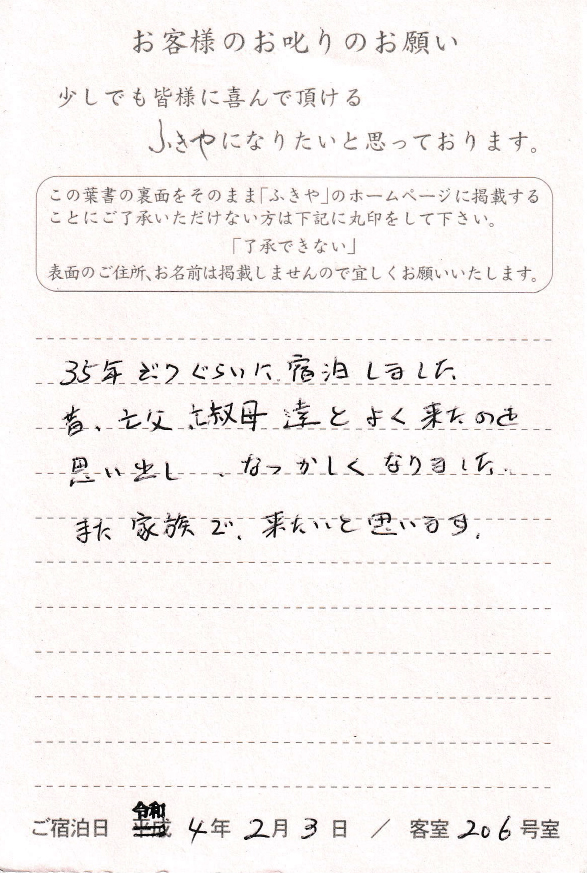 お客様のお叱りのお願い
少しでも皆様に喜んで頂ける
ふきやになりたいと思っております。
この葉書の裏面をそのまま「ふきや」のホームページに掲載する
ことにご了承いただけない方は下記に丸印をして下さい。
「了承できない」
表面のご住所、お名前は掲載しませんので宜しくお願いいたします。
35年ぶりぐらいに宿泊しました
昔、亡父 亡叔母 達とよく来たのを
思い出し、なつかしくなりました。
また家族で、来たいと思います。
ご宿泊日 令和 平成 4年 2月 3日 / 客室 206号室